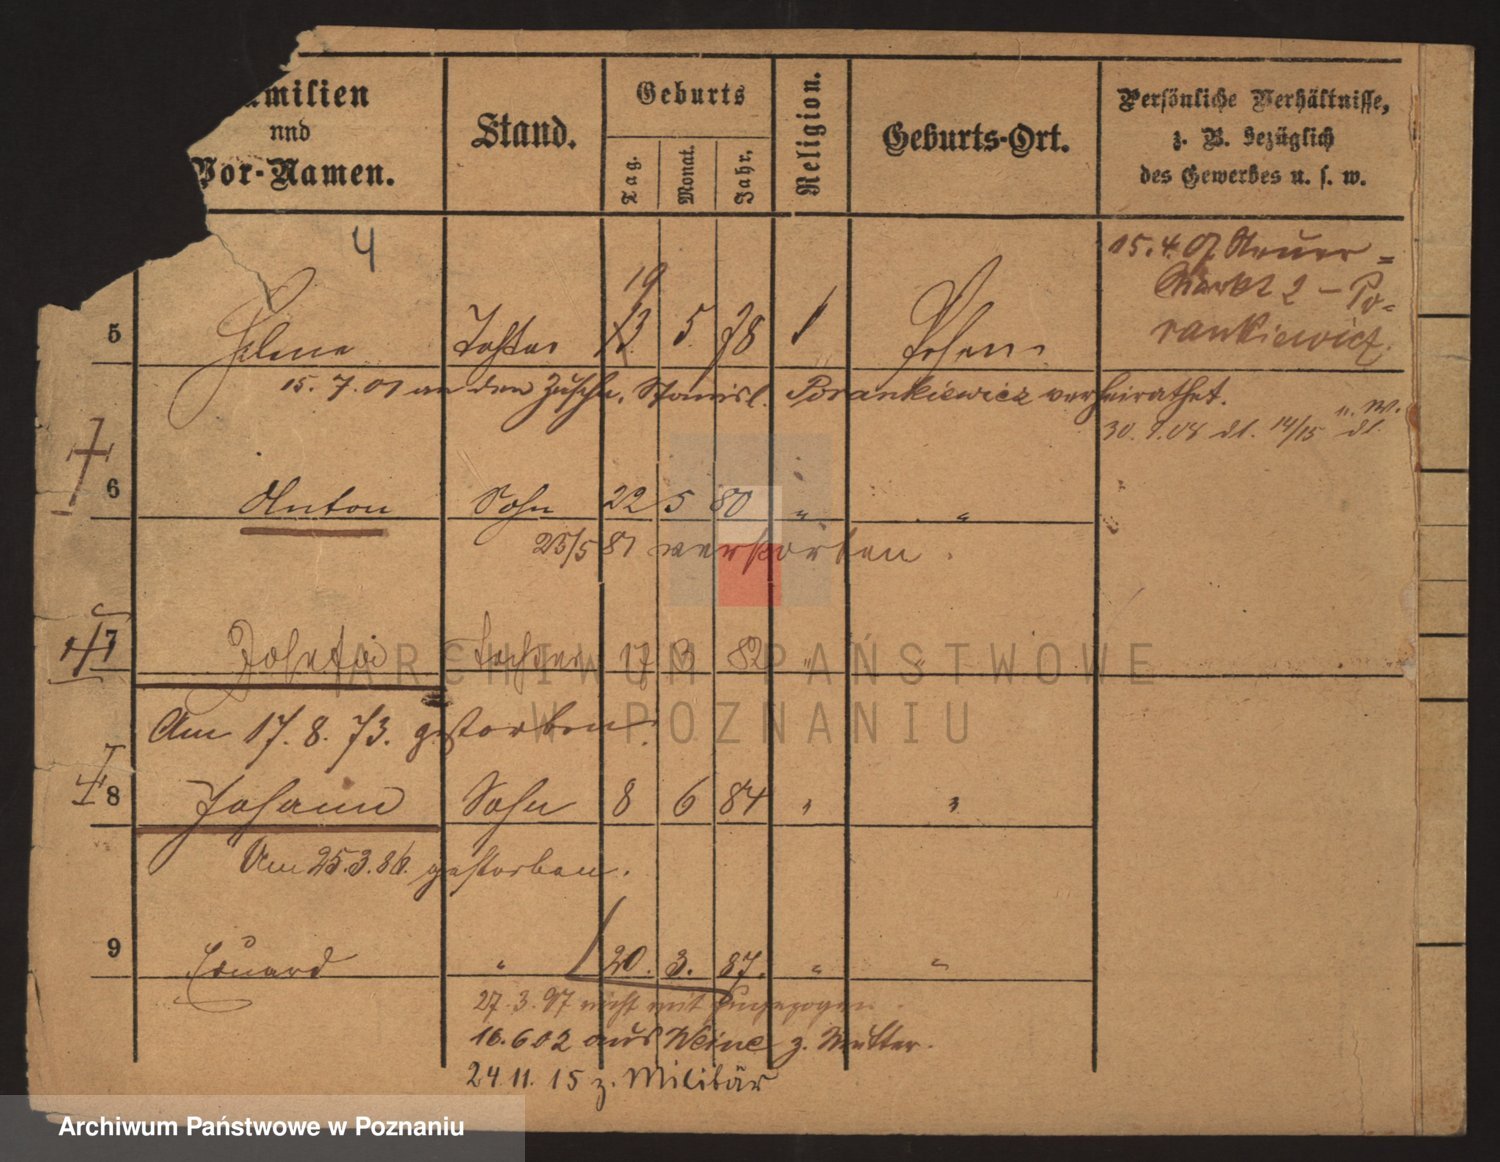 amilien
nnd
Vor-Namen.
Stand.
Geburts
Tag.
Monat.
Jahr.
Religion.
Geburts-Ort.
Persönliche Verhältnisse,
z. B. bezüglich
des Gewerbes u. s. w.
4
15.4.07 Neuer=
Markt 2 – Po-
rankiewicz.
19
5 Helene Tochter 13. 5. 78 Posen
15. 7. 01 an den Zuschn. Stanisl. Porankiewicz verheirathet.
30. 9. 08 dl. 14/15 u. W. dl.
6 Anton Sohn 22 5 80 " "
25/5 81 verstorben.
7 Tochter 17 3 82 " "
Am 17. 8. 73. gestorben.
8 Johann Sohn 8 6 84 " "
Am 25.3.86. gestorben.
9 Eduard " 20. 3. 87. " "
27. 3. 97 nicht mit zugezogen.
16.6 02 aus z. Mutter.
24. 11. 15 z. Militär
ARCHIWUM PAŃSTWOWE
W POZNANIU
Archiwum Państwowe w Poznaniu